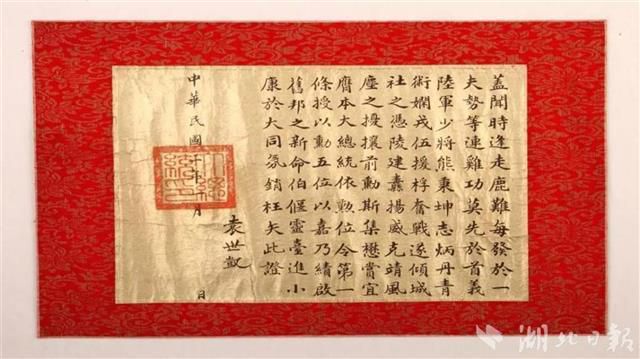 蓋聞時逢走鹿難每發於一
夫勢等連雞功莫先於首義
陸軍少將熊秉坤志炳丹青
術嫻戎伍援桴奮戰遂傾城
社之憑陵建纛揚威克靖風
塵之擾攘前勳斯集懋賞宜
膺本大總統依勳位令第一
條授以勳五位以嘉乃績啟
舊邦之新命伯偃靈臺進小
康於大同氛銷枉矢此證
袁世凱
中華民國 年 月 日
湖北日報